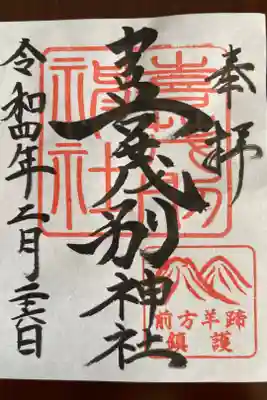 奉拝
喜茂別神社
喜茂別
神社
令和四年二月二六日
前方羊蹄
鎮護